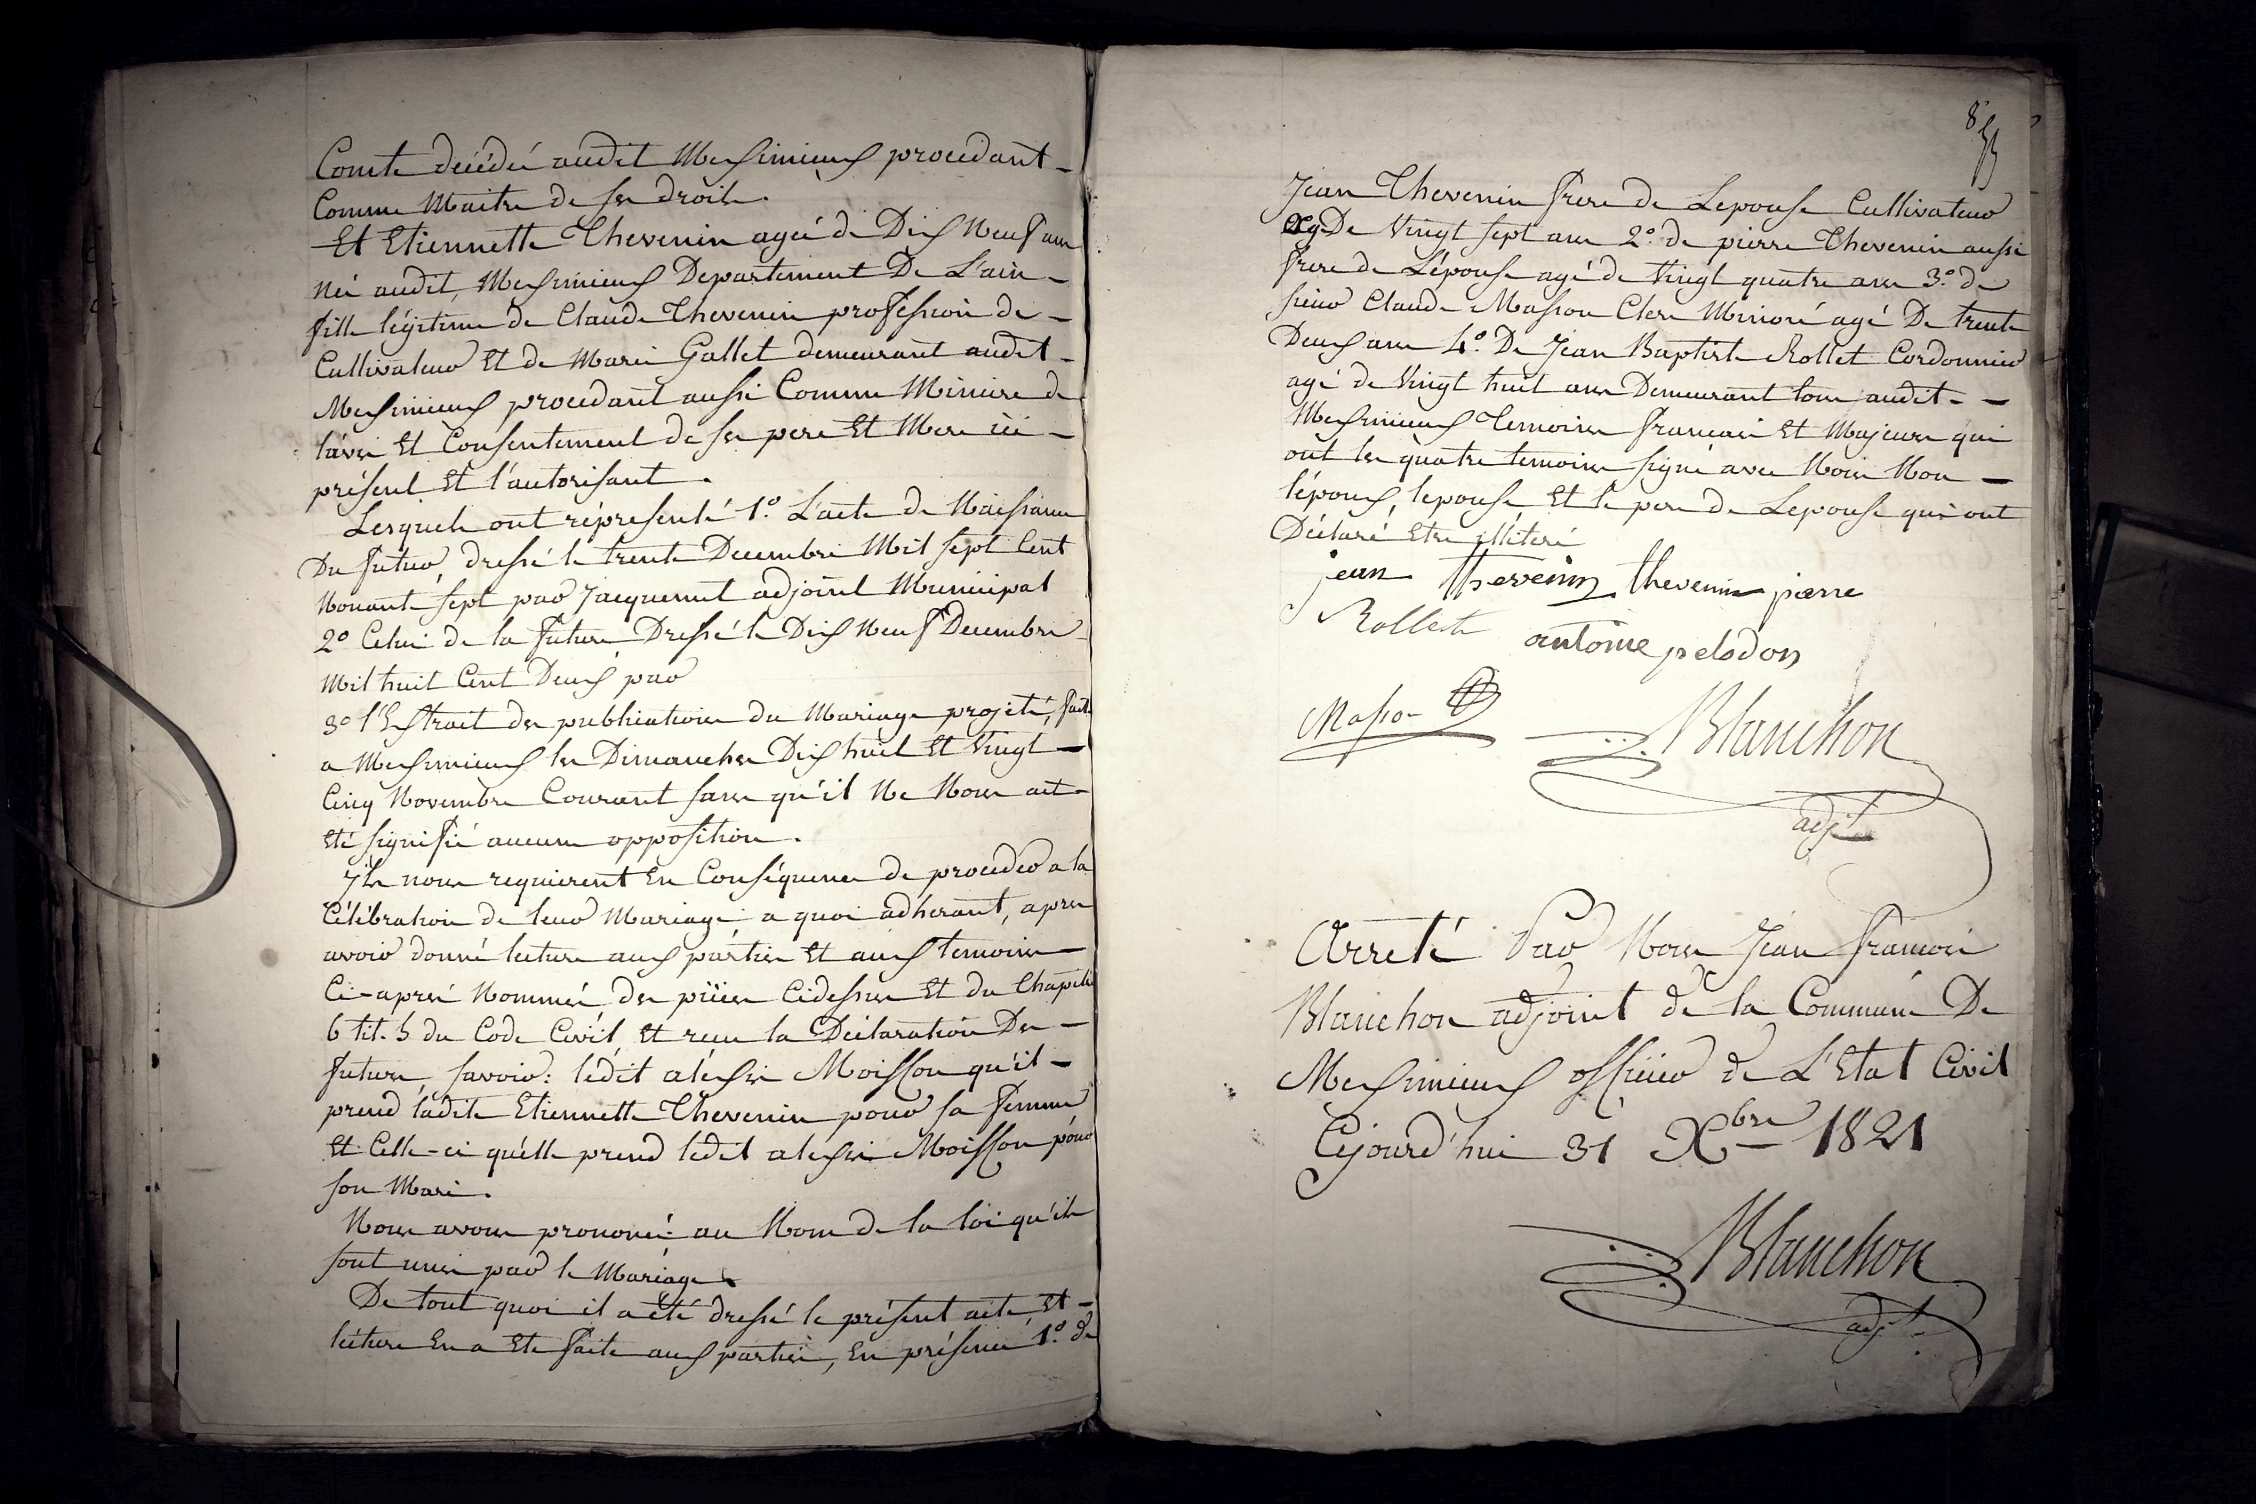 Comte décédé audit Messimieux procédant
Comme Maitre de ses droits.
Et Etiennette Thevenin agée de Dix Neuf ans
Née audit, Messimieux Departement De L'ain
fille légitime de Claude Thevenin profession de
Cultivateur Et de Marie Gallet demeurant audit
Messimieux procedant aussi Comme Mineure de
l'avis Et Consentement de ses pere Et Mere ici
présent Et l'autorisant.
Lesquels ont réprésenté 1.º L'acte de Naissance
Du futur, dressé le trente Decembre Mil sept Cent
Nonante sept par Jacquemet adjoint Municipal
2º Celui de la future Dressé le Dix Neuf Decembre
Mil huit Cent Deux par
3º l'Extrait des publications du Mariage projeté, fait
a Messimieux les Dimanches Dix huit Et Vingt
Cinq Novembre Courant sans qu'il Ne Nous ait
Eté signifié aucune opposition.
Ils nous requierent En Conséquence de procéder a la
Célébration de leur Mariage: a quoi adherant, apres
avoir donné lecture aux parties Et aux temoins
Ci-après Nommés, des pièces Cidessus Et du Chapitre
6 tit. 5 du Code Civil, Et recu la Déclaration Des
futurs, savoir: ledit alexis Moisson qu'il
prend ladite Etiennette Thevenin pour sa femme
Et Celle-ci qu'elle prend ledit alexis Moisson pour
son Mari.
Nous avons prononcé au Nom de la loi qu'ils
sont unis par le Mariage.
De tout quoi il a été dressé le présent acte, Et
lecture En a Eté faite aux parties, En présence 1.º de
8
Jean Thevenin frere de Lepouse Cultivateur
agé De Vingt sept ans 2.º de pierre Thevenin aussi
frere de L'épouse agé de Vingt quatre ans 3.º de
sieur Claude Masson Clerc Minoré agé De trente
Deux ans 4.º De Jean Baptiste Rollet Cordonnier
agé de Vingt huit ans Demeurant tous audit
Messimieux Temoins francais Et Majeurs qui
ont les quatre temoins signé avec Nous Non
l'époux, lepouse Et le pere de Lepouse qui ont
Déclaré Etre illiteré
jean thevenin thevenin pierre
Rollet antoine pelodon
Masson Blanchon
adjt
Arreté Par Nous Jean francois
Blanchon adjoint de la Commune De
Messimieux officier de L'Etat Civil
Cejourd'hui 31 Xbre 1821
Blanchon
adjt